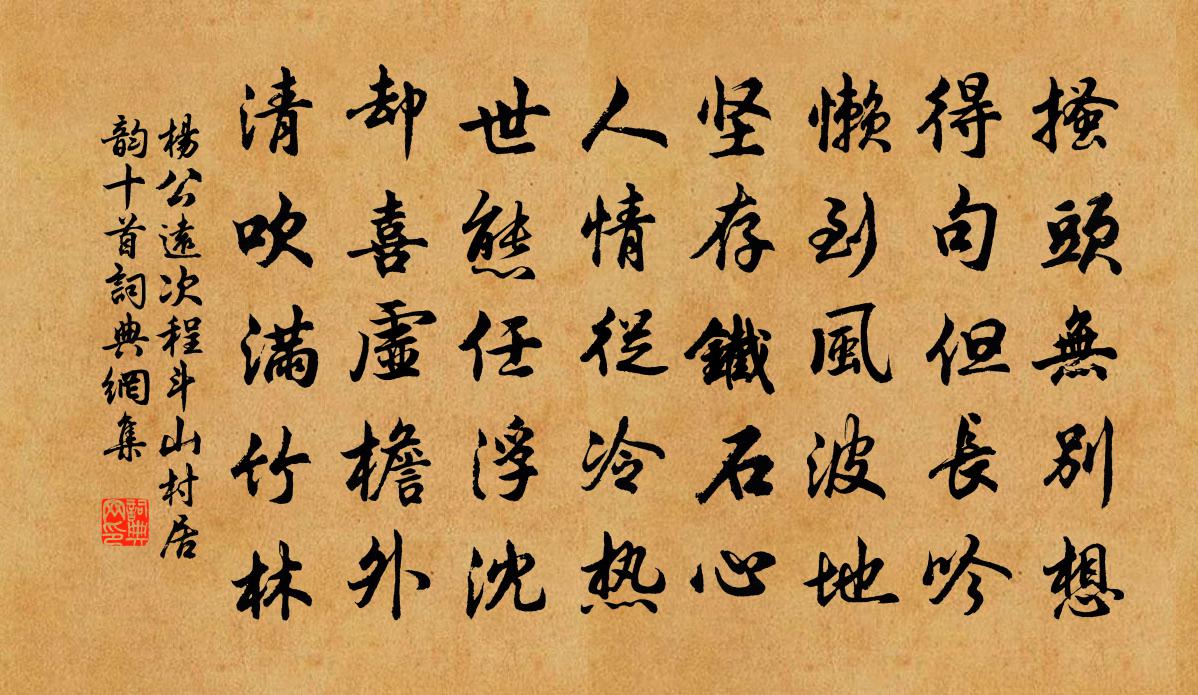 搔頭無別想
得句但長吟
懶到風波地
坚存鐵石心
人情從冷热
世態任浮沈
却喜虛檐外
清吹滿竹林
楊公遠次程斗山村居
韵十首詞典網集
詞典網印